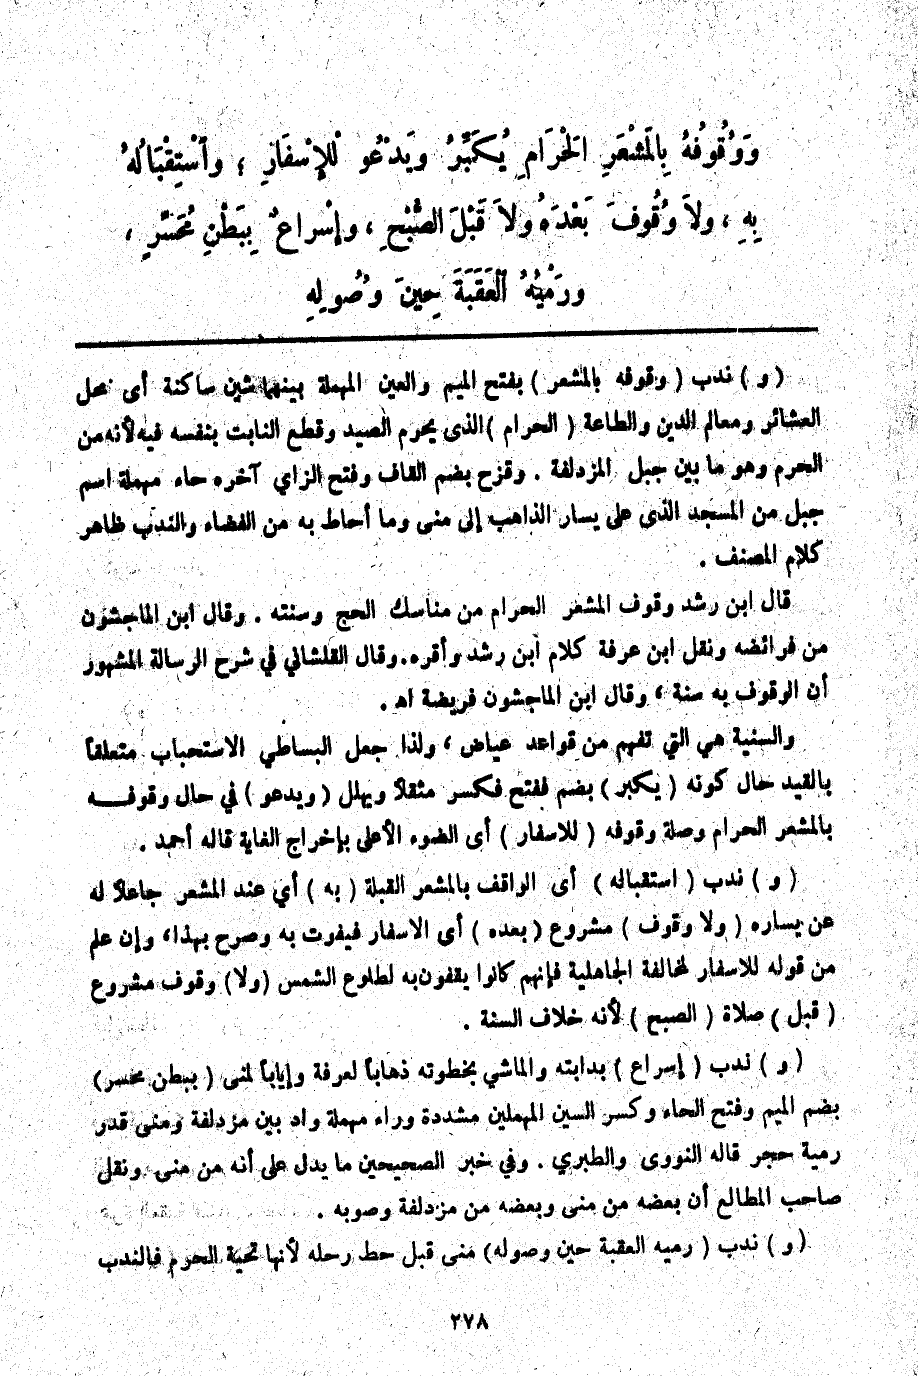 وَوُقُوفُهُ بِالْمَشْعَرِ الْحَرَامِ يُكَبِّرُ ويَدْعُو لْلإِسْفَارِ ، واسْتِقْبَالُهُ
بِهِ ، ولاَ وُقُوفَ بَعْدَهُ ولاَ قَبْلَ الصُّبْحِ ، وإِسْراعٌ بِبَطْنِ مُحَسِّرٍ ،
ورَمْيُهُ الْعَقَبَةَ حِينَ وُصُولِهِ
( و ) ندب ( وقوفه بالمشعر ) بفتح الميم والعين المهملة بينهما شين ساكنة أى محل
العشائر ومعالم الدين والطاعة ( الحرام ) الذى يحرم الصيد وقطع النابت بنفسه فيه لأنه من
الحرم وهو ما بين جبل المزدلفة . وقزح بضم القاف وفتح الزاي آخره حاء مهملة اسم
جبل من المسجد الذى على يسار الذاهب إلى منى وما أحاط به من الفضاء والندب ظاهر
كلام المصنف .
قال ابن رشد وقوف المشعر الحرام من مناسك الحج وسنته . وقال ابن الماجشون
من فرائضه ونقل ابن عرفة كلام ابن رشد وأقره . وقال القلشاني في شرح الرسالة المشهور
أن الوقوف به سنة ، وقال ابن الماجشون فريضة اه .
والسنية هي التي تفهم من قواعد عياض ، ولذا جعل البساطي الاستحباب متعلقاً
بالقيد حال كونه ( يكبر ) بضم ففتح فكسر مثقلاً ويهلل ( ويدعو ) في حال وقوفـــه
بالمشعر الحرام وصلة وقوفه ( للاسفار ) أى الضوء الأعلى بإخراج الغاية قاله أحمد .
( و ) ندب ( استقباله ) أى الواقف بالمشعر القبلة ( به ) أي عند المشعر جاعلاً له
عن يساره ( ولا وقوف ) مشروع ( بعده ) أى الاسفار فيفوت به وصرح بهذا ، وإن علم
من قوله للاسفار لمخالفة الجاهلية فإنهم كانوا يقفون به لطلوع الشمس (ولا) وقوف مشروع
( قبل ) صلاة ( الصبح ) لأنه خلاف السنة .
( و ) ندب ( إسراع ) بدابته والماشي بخطوته ذهاباً لعرفة وإياباً لمنى ( ببطن محسر)
بضم الميم وفتح الحاء وكسر السين المهملين مشددة وراء مهملة واد بين مزدلفة ومنى قدر
رمية حجر قاله النووى والطبري . وفي خبر الصحيحين ما يدل على أنه من منى ونقل
صاحب المطالع أن بعضه من منى وبعضه من مزدلفة وصوبه .
( و ) ندب ( رميه العقبة حين وصوله) منى قبل حط رحله لأنها تحية الحرم فالندب
٢٧٨